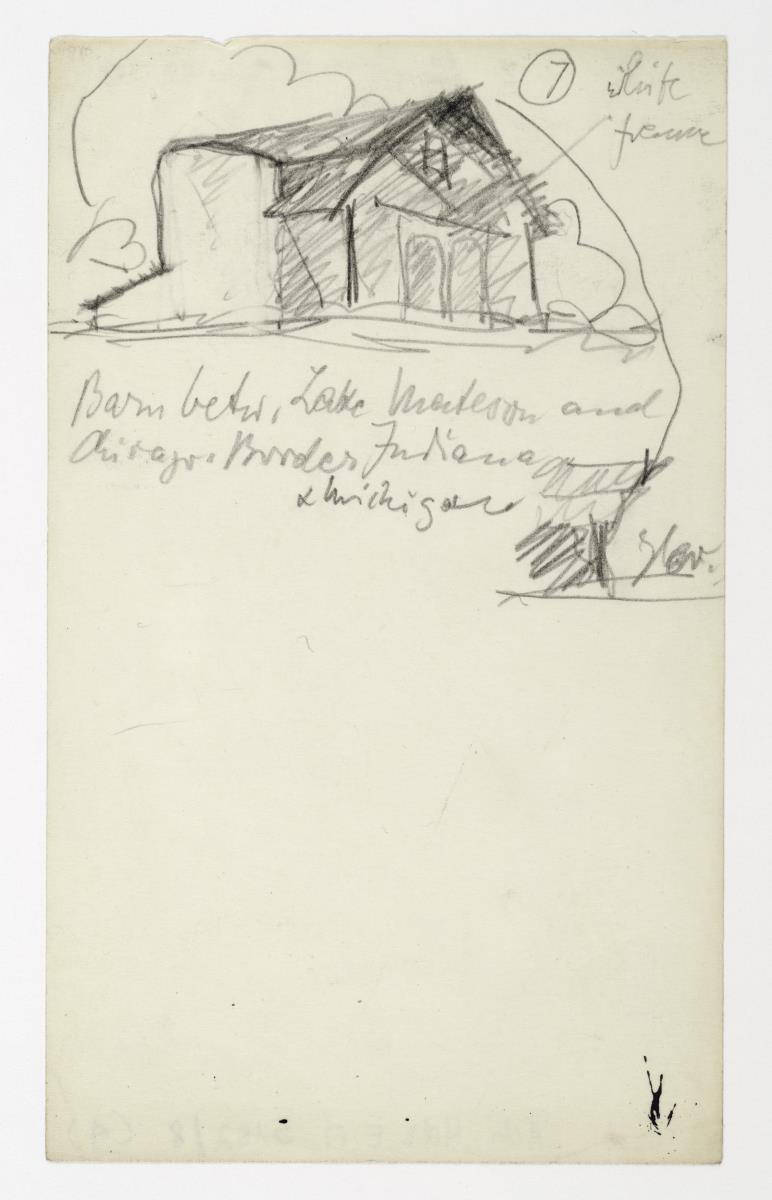 7
white
frame
Barn betw. Lake Mateson and
Chicago. Border Indiana
& Michigan